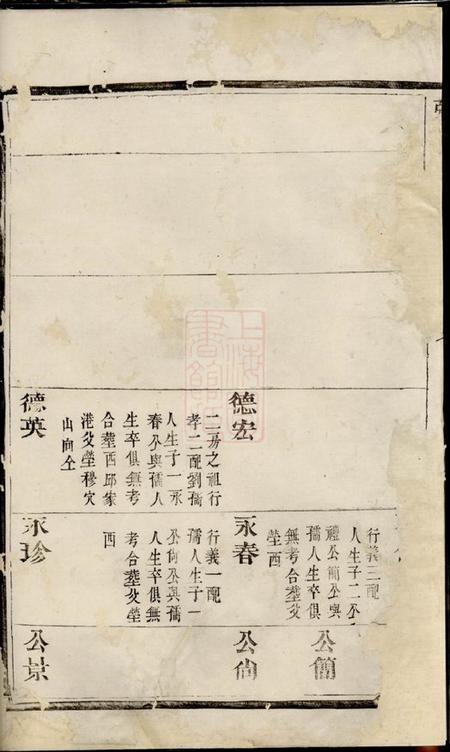 行義三配
人生子二公
禮公簡公與
孺人生卒俱
無考合塟父
塋西
公簡
德宏
二房之祖行
孝二配劉孺
人生子一永
春公與孺人
生卒俱無考
合塟西邱家
港父塋穆穴
山向仝
永春
行義一配
孺人生子一
公尙公與孺
人生卒俱無
考合塟父塋
西
公尙
德英
永珍
公景
上海
書館